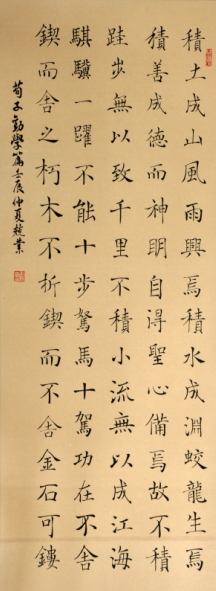 積土成山風雨興焉積水成淵蛟龍生焉
積善成德而神明自得聖心備焉故不積
跬步無以致千里不積小流無以成江海
騏驥一躍不能十步駑馬十駕功在不舍
鍥而舍之朽木不折鍥而不舍金石可鏤
荀子勸學篇壬辰仲夏